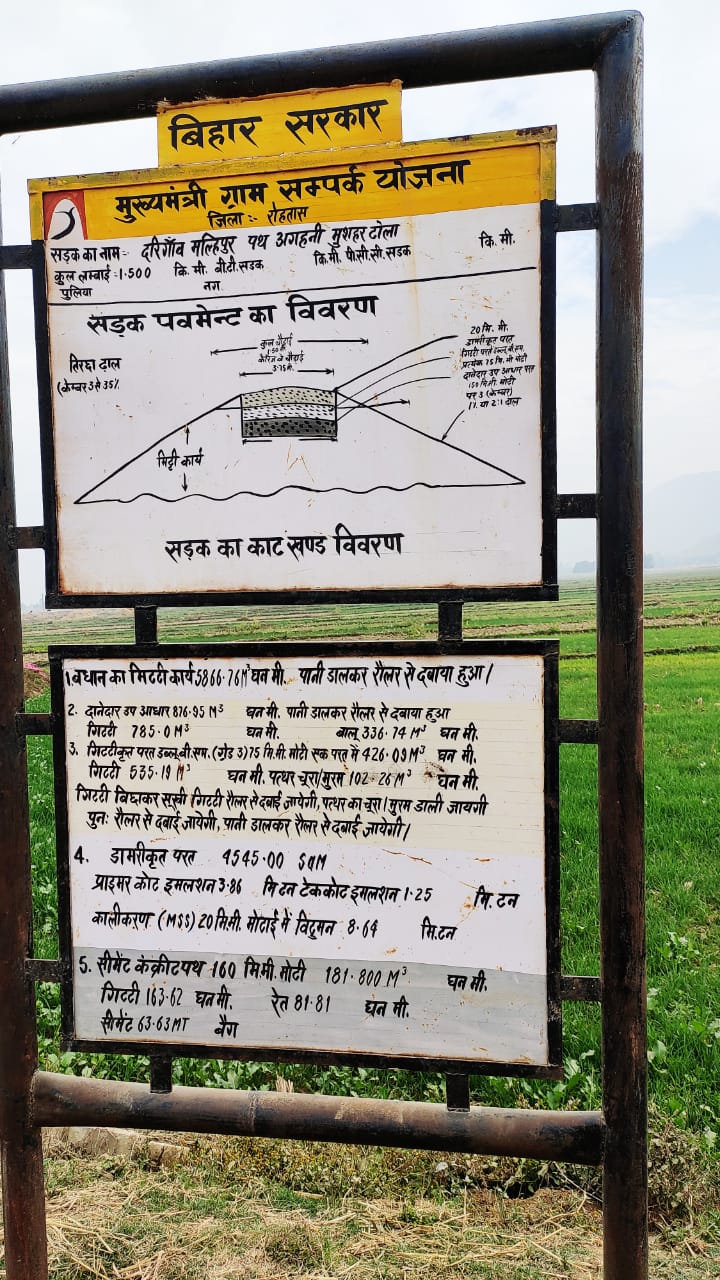 बिहार सरकार
मुख्यमंत्री ग्राम सम्पर्क योजना
जिला:- रोहतास
सड़क का नाम:- दरिगाँव मल्हिपुर पथ अगहनी मुशहर टोला कि. मी.
कुल लम्बाई:1.500 कि. मी. बी.टी. सड़क कि. मी. पी.सी.सी. सड़क
पुलिया नग
सड़क पवमेन्ट का विवरण
कुल चौड़ाई
3.75 मी.
तिरछा ढाल
(केम्बर 3 से 35%
20 मि. मी.
डामरीकृत परत
गिटटी परत डब्लू.बी.एम.
प्रत्येक 75 मि. मी मोटी
दानेदार उप आधार परत
150 मि.मी. मोटी
पर 3 (केम्बर)
1% या 2:1 ढाल
मिट्टी कार्य
सड़क का काट खण्ड विवरण
1. बंधान का मिटटी कार्य 5866.76M³ घन मी. पानी डालकर रौलर से दबाया हुआ।
2. दानेदार उप आधार 876.95 M³ घन मी. पानी डालकर रौलर से दबाया हुआ
गिटटी 785.0 M³ घन मी. बालू 336.74 M³ घन मी.
3. गिटटीकृत परत डब्लू.बी.एम. (ग्रेड 3) 75 मि.मी. मोटी एक परत में 426.09M³ घन मी.
गिटटी 535.19 M³ घन मी. पत्थर चूरा/मुरम 102.26 M³ घन मी.
गिटटी बिछाकर सूखी गिटटी रौलर से दबाई जायेगी, पत्थर का चूरा/मुरम डाली जायगी
पुनः रौलर से दबाई जायेगी, पानी डालकर रौलर से दबाई जायेगी।
4. डामरीकृत परत 4545.00 SQM
प्राइमर कोट इमलशन 3.86 मि टन टेककोट इमलशन 1.25 मि. टन
कालीकरण (MSS) 20 मि.मी. मोटाई में विटुमन 8.64 मि.टन
5. सीमेंट कंक्रीट पथ 160 मि.मी. मोटी 181.800 M³ घन मी.
गिटटी 163.62 घन मी. रेत 81.81 घन मी.
सीमेंट 63.63MT बैग